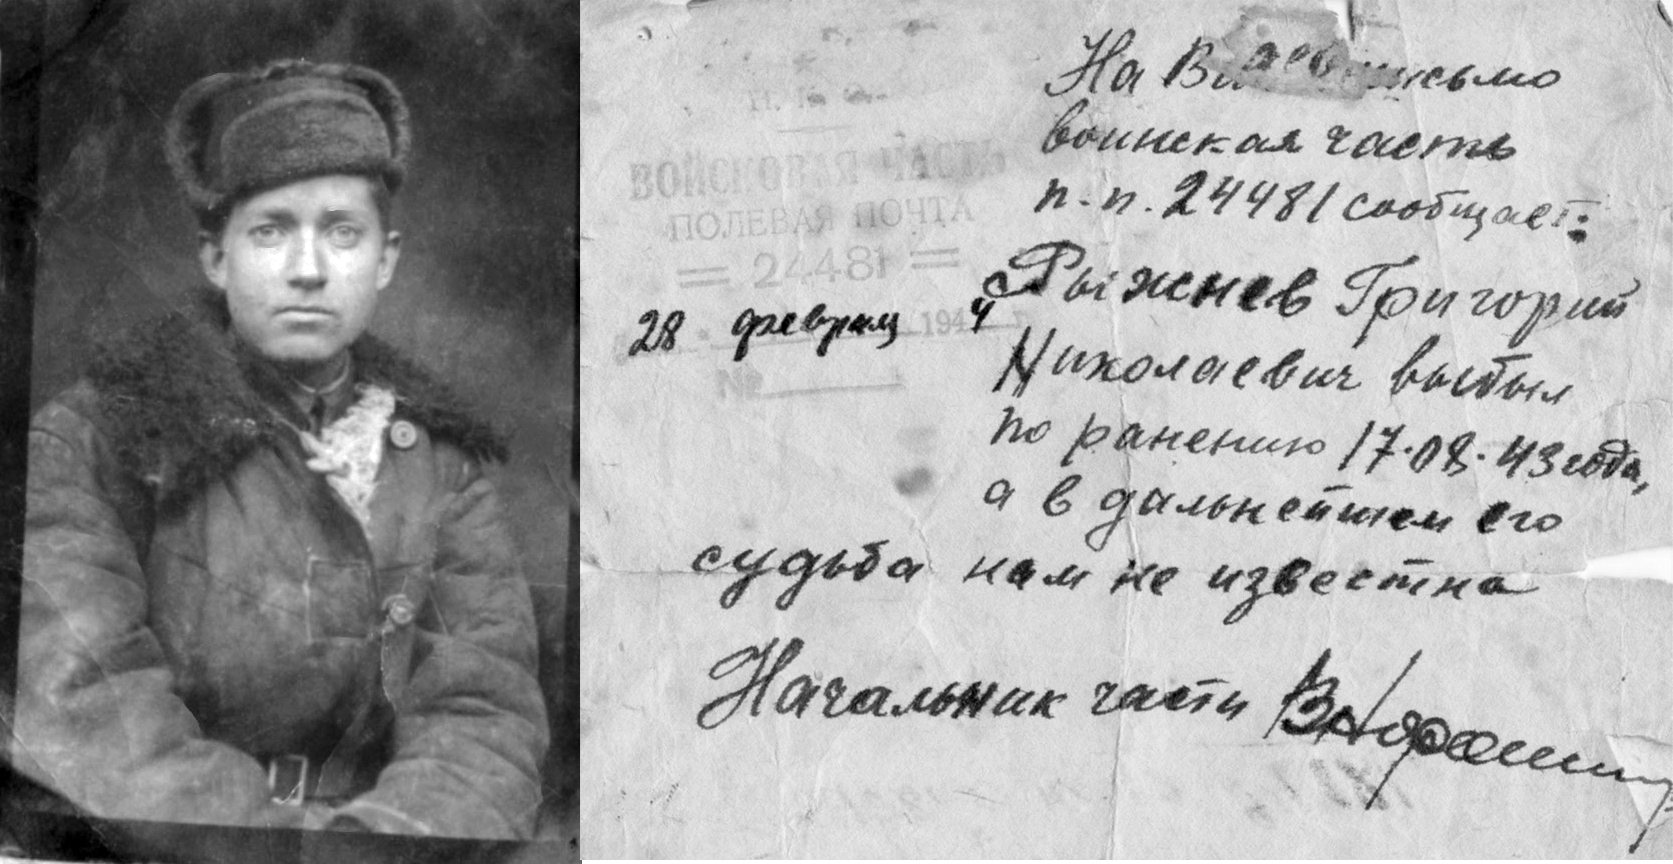 Н. К. О.
ВОЙСКОВАЯ ЧАСТЬ
ПОЛЕВАЯ ПОЧТА
= 24481 =
28 феврал 1944 г.
№
На письмо
воинская часть
п.п. 24481 сообщает:
Рыжнев Григорий
Николаевич выбыл
по ранению 17.08.43 года,
а в дальнейшем его
судьба нам не известна
Начальник части